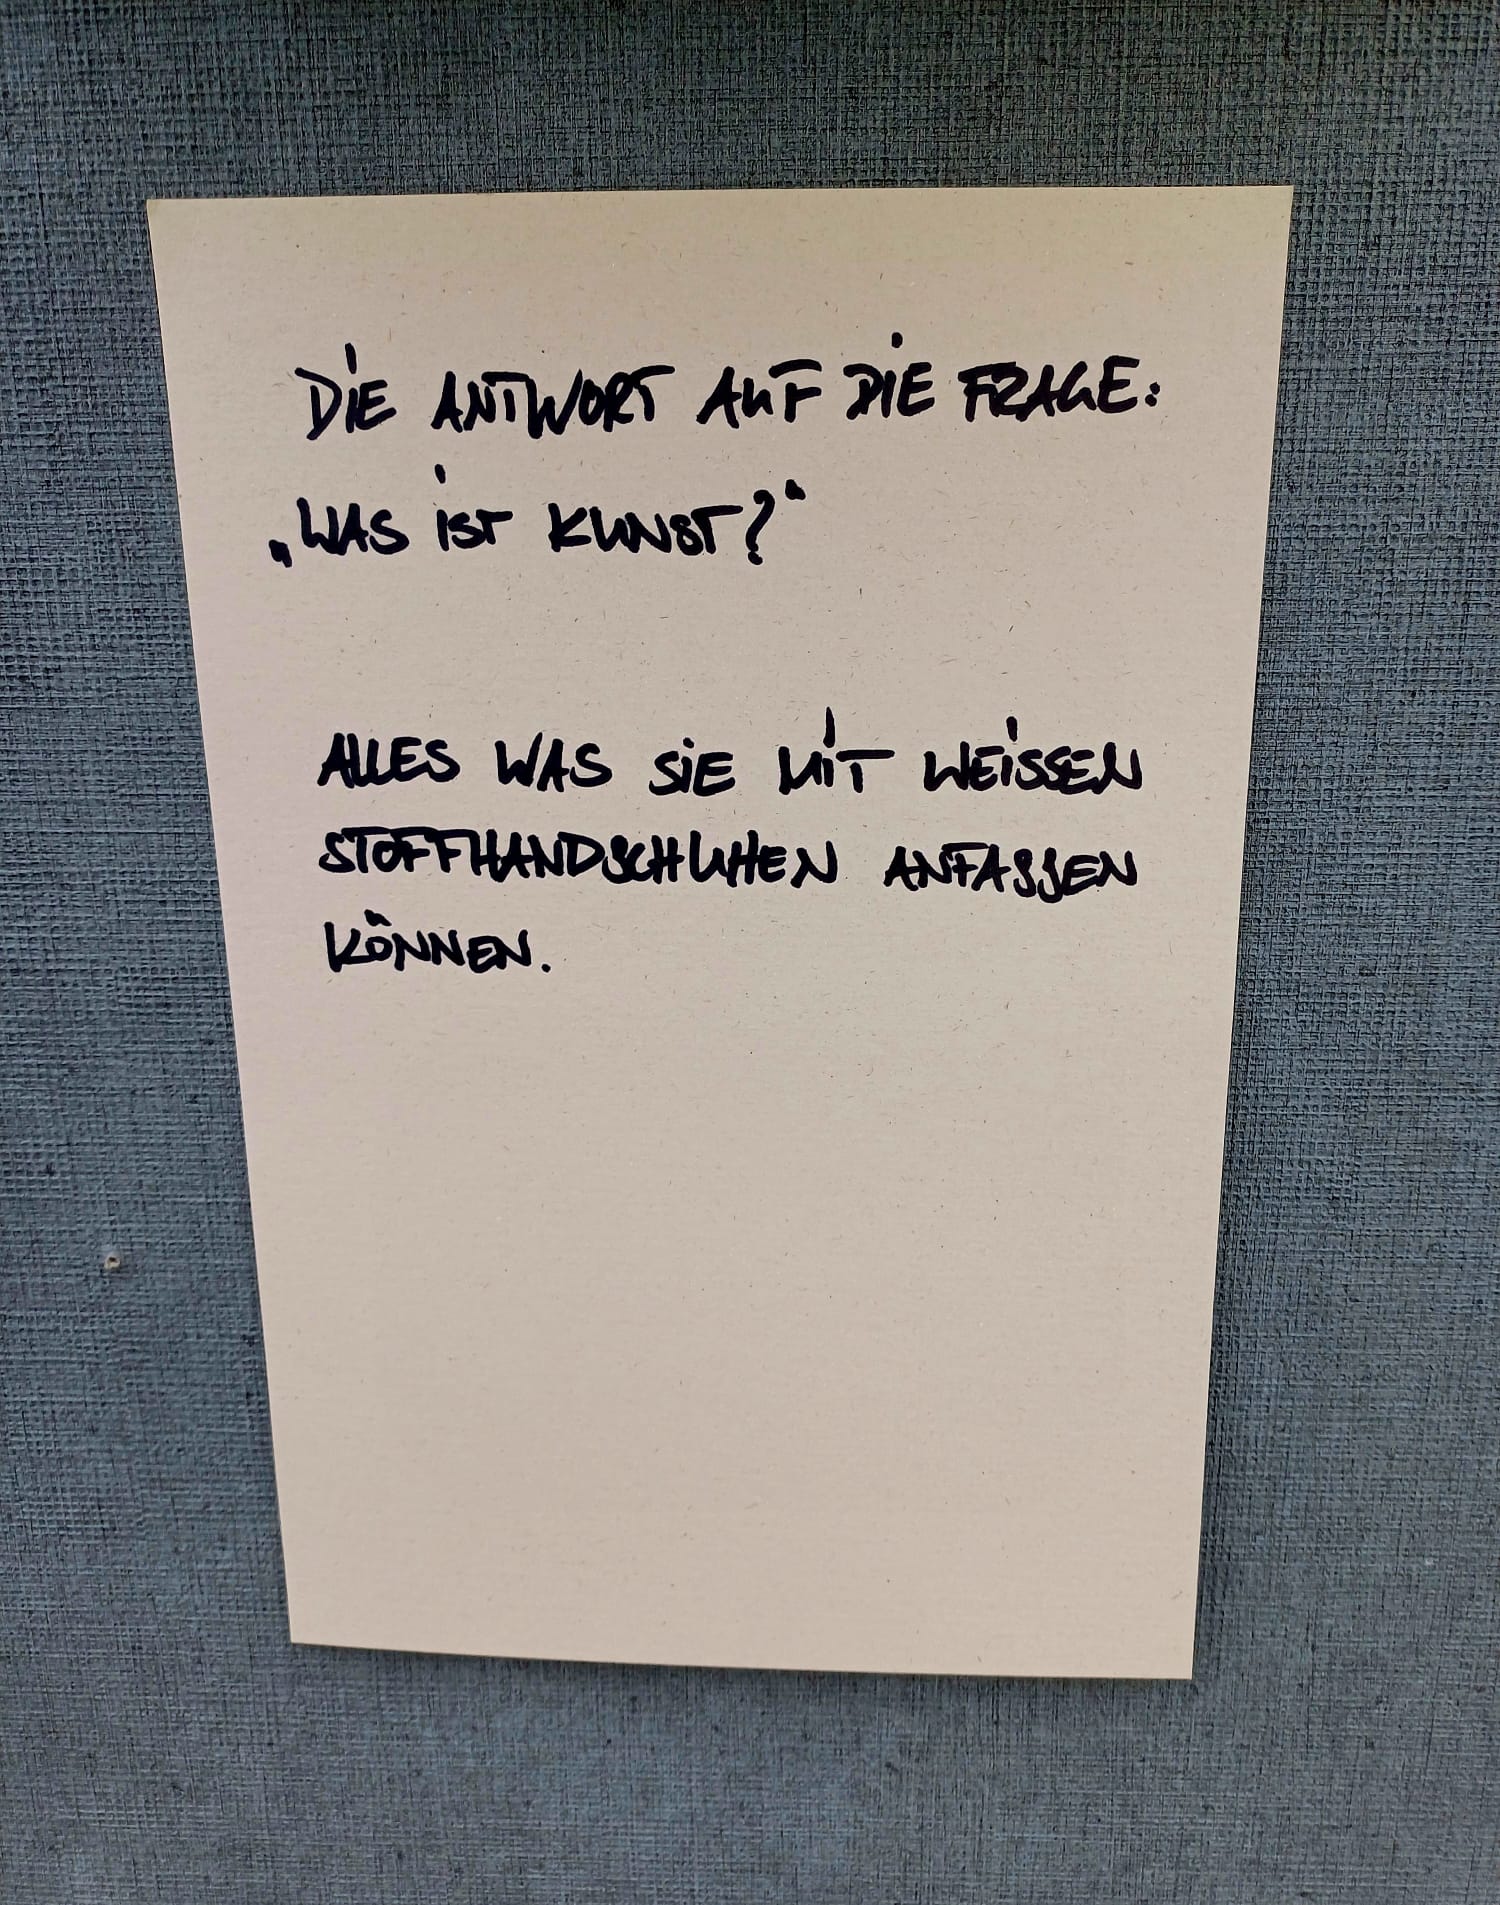 DIE ANTWORT AUF DIE FRAGE:
„WAS IST KUNST?“
ALLES WAS SIE MIT WEISSEN
STOFFHANDSCHUHEN ANFASSEN
KÖNNEN.